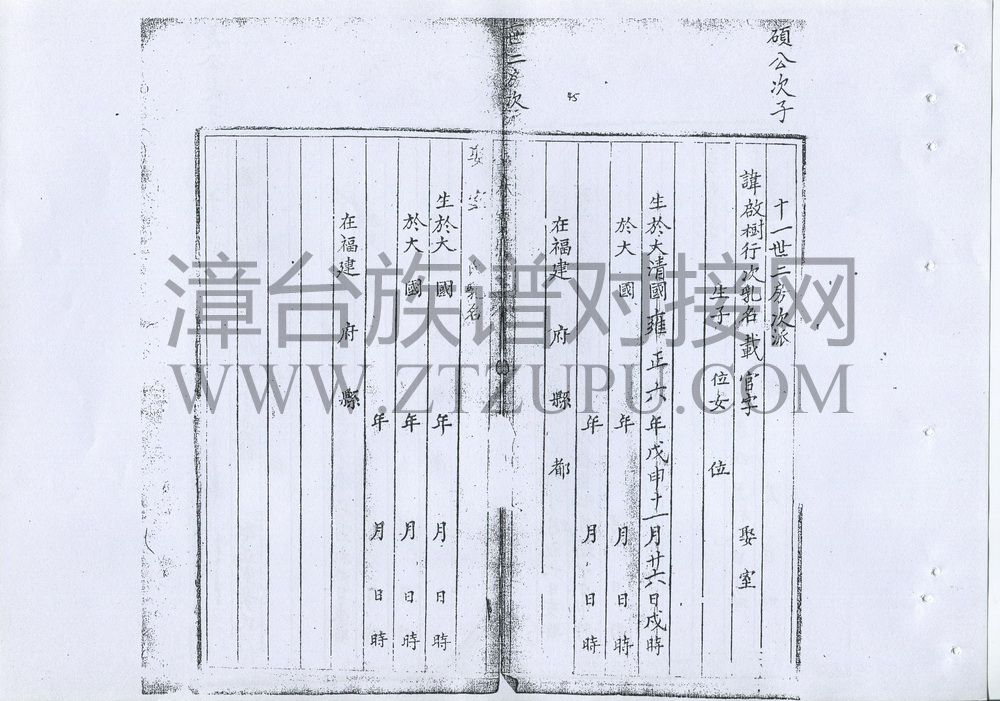 碩公次子
十一世二房次派
諱啟樹行次乳名載官字 娶室
生子 位女 位
生於大清國雍正六年戊申十一月廿六日戌時
於大 國 年 月 日 時
年 月 日 時
在福建 府 縣 都
世二房次
45
娶室 乳名
生於大 國 年 月 日 時
於大 國 年 月 日 時
年 月 日 時
在福建 府 縣
漳台族谱对接网
WWW.ZTZUPU.COM